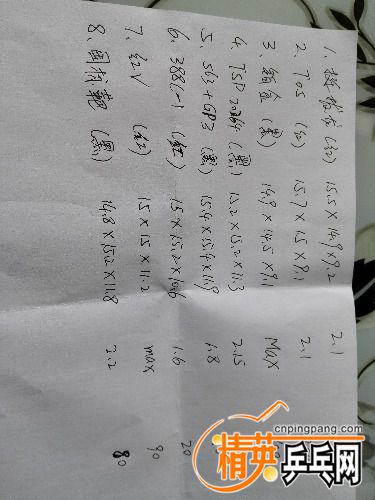 1. 拚搏龙 (红) 15.5×14.9×9.2 2.1
2. TOS (红) 15.7×15×9.1 2.1
3. (蓝) 14.9×14.5×9.1 MAX
4. TSP 20264 (黑) 15.2×15.2×11.3 2.15
5. 563+GP3 (黑) 15.4×15.4×11.9 1.8
6. 388C-1 (红) 15×15.2×10.6 1.6 20
7. 红V (红) 15×15×11.2 max 90
8. 国狂 (黑) 14.8×15.2×11.8 2.2 80
cnpingpang.com
精英乒乓网